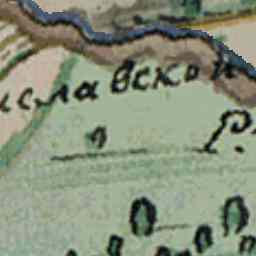 иславской
Р.